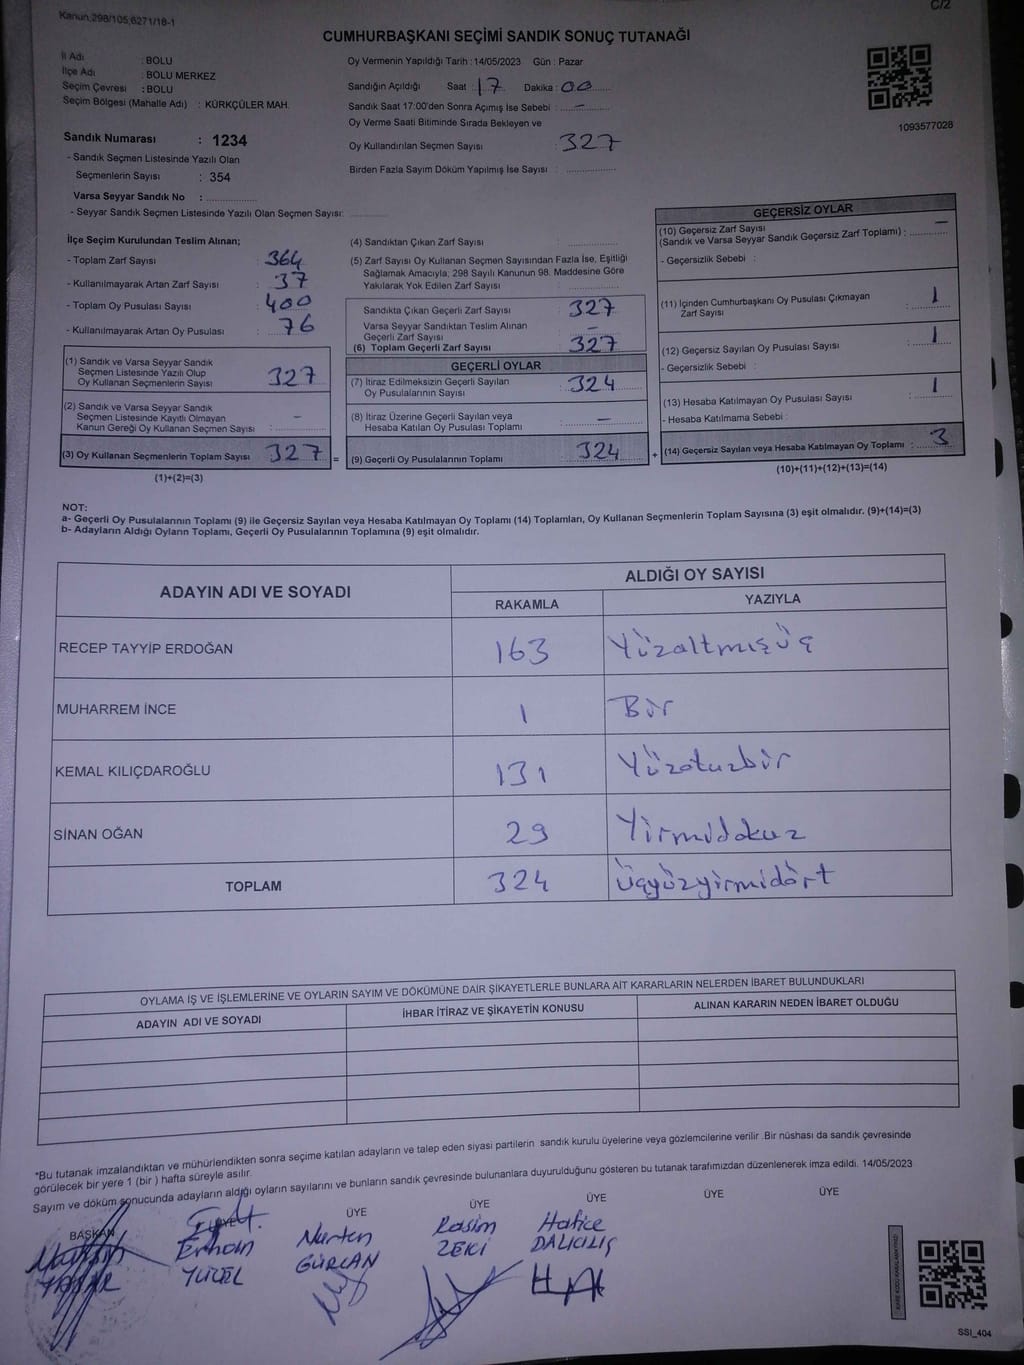 Kanun:298/105;6271/18-1
C/2
CUMHURBAŞKANI SEÇİMİ SANDIK SONUÇ TUTANAĞI
İl Adı : BOLU
İlçe Adı : BOLU MERKEZ
Seçim Çevresi : BOLU
Seçim Bölgesi (Mahalle Adı) : KÜRKÇÜLER MAH.
Oy Vermenin Yapıldığı Tarih : 14/05/2023 Gün : Pazar
Sandığın Açıldığı Saat : 17 Dakika : 00
Sandık Saat 17:00'den Sonra Açımış İse Sebebi : –
Oy Verme Saati Bitiminde Sırada Bekleyen ve
Oy Kullandırılan Seçmen Sayısı : 327
Birden Fazla Sayım Döküm Yapılmış İse Sayısı :
1093577028
Sandık Numarası : 1234
- Sandık Seçmen Listesinde Yazılı Olan
Seçmenlerin Sayısı : 354
Varsa Seyyar Sandık No :
- Seyyar Sandık Seçmen Listesinde Yazılı Olan Seçmen Sayısı:
İlçe Seçim Kurulundan Teslim Alınan;
- Toplam Zarf Sayısı : 364
- Kullanılmayarak Artan Zarf Sayısı : 37
- Toplam Oy Pusulası Sayısı : 400
- Kullanılmayarak Artan Oy Pusulası : 76
(1) Sandık ve Varsa Seyyar Sandık
Seçmen Listesinde Yazılı Olup
Oy Kullanan Seçmenlerin Sayısı : 327
(2) Sandık ve Varsa Seyyar Sandık
Seçmen Listesinde Kayıtlı Olmayan
Kanun Gereği Oy Kullanan Seçmen Sayısı : –
(3) Oy Kullanan Seçmenlerin Toplam Sayısı : 327 =
(1)+(2)=(3)
(4) Sandıktan Çıkan Zarf Sayısı :
(5) Zarf Sayısı Oy Kullanan Seçmen Sayısından Fazla İse, Eşitliği
Sağlamak Amacıyla, 298 Sayılı Kanunun 98. Maddesine Göre
Yakılarak Yok Edilen Zarf Sayısı :
Sandıkta Çıkan Geçerli Zarf Sayısı : 327
Varsa Seyyar Sandıktan Teslim Alınan
Geçerli Zarf Sayısı : –
(6) Toplam Geçerli Zarf Sayısı : 327
GEÇERLİ OYLAR
(7) İtiraz Edilmeksizin Geçerli Sayılan
Oy Pusulalarının Sayısı : 324
(8) İtiraz Üzerine Geçerli Sayılan veya
Hesaba Katılan Oy Pusulası Toplamı : –
(9) Geçerli Oy Pusulalarının Toplamı : 324 +
GEÇERSİZ OYLAR
(10) Geçersiz Zarf Sayısı
(Sandık ve Varsa Seyyar Sandık Geçersiz Zarf Toplamı) : –
- Geçersizlik Sebebi :
(11) İçinden Cumhurbaşkanı Oy Pusulası Çıkmayan
Zarf Sayısı : 1
(12) Geçersiz Sayılan Oy Pusulası Sayısı : 1
- Geçersizlik Sebebi :
(13) Hesaba Katılmayan Oy Pusulası Sayısı : 1
- Hesaba Katılmama Sebebi :
(14) Geçersiz Sayılan veya Hesaba Katılmayan Oy Toplamı : 3
(10)+(11)+(12)+(13)=(14)
NOT:
a- Geçerli Oy Pusulalarının Toplamı (9) ile Geçersiz Sayılan veya Hesaba Katılmayan Oy Toplamı (14) Toplamları, Oy Kullanan Seçmenlerin Toplam Sayısına (3) eşit olmalıdır. (9)+(14)=(3)
b- Adayların Aldığı Oyların Toplamı, Geçerli Oy Pusulalarının Toplamına (9) eşit olmalıdır.
ADAYIN ADI VE SOYADI ALDIĞI OY SAYISI
RAKAMLA YAZIYLA
RECEP TAYYİP ERDOĞAN 163 Yüzaltmışüç
MUHARREM İNCE 1 Bir
KEMAL KILIÇDAROĞLU 131 Yüzotuzbir
SİNAN OĞAN 29 Yirmidokuz
TOPLAM 324 Üçyüzyirmidört
OYLAMA İŞ VE İŞLEMLERİNE VE OYLARIN SAYIM VE DÖKÜMÜNE DAİR ŞİKAYETLERLE BUNLARA AİT KARARLARIN NELERDEN İBARET BULUNDUKLARI
ADAYIN ADI VE SOYADI İHBAR İTİRAZ VE ŞİKAYETİN KONUSU ALINAN KARARIN NEDEN İBARET OLDUĞU
*Bu tutanak imzalandıktan ve mühürlendikten sonra seçime katılan adayların ve talep eden siyasi partilerin sandık kurulu üyelerine veya gözlemcilerine verilir .Bir nüshası da sandık çevresinde
görülecek bir yere 1 (bir ) hafta süreyle asılır.
Sayım ve döküm sonucunda adayların aldığı oyların sayılarını ve bunların sandık çevresinde bulunanlara duyurulduğunu gösteren bu tutanak tarafımızdan düzenlenerek imza edildi. 14/05/2023
BAŞKAN ÜYE ÜYE ÜYE ÜYE ÜYE ÜYE
Erhan Nurten Rasim Hatice
YAŞAR YÜCEL GÜRCAN ZEKİ DALKILIÇ
SSI_404